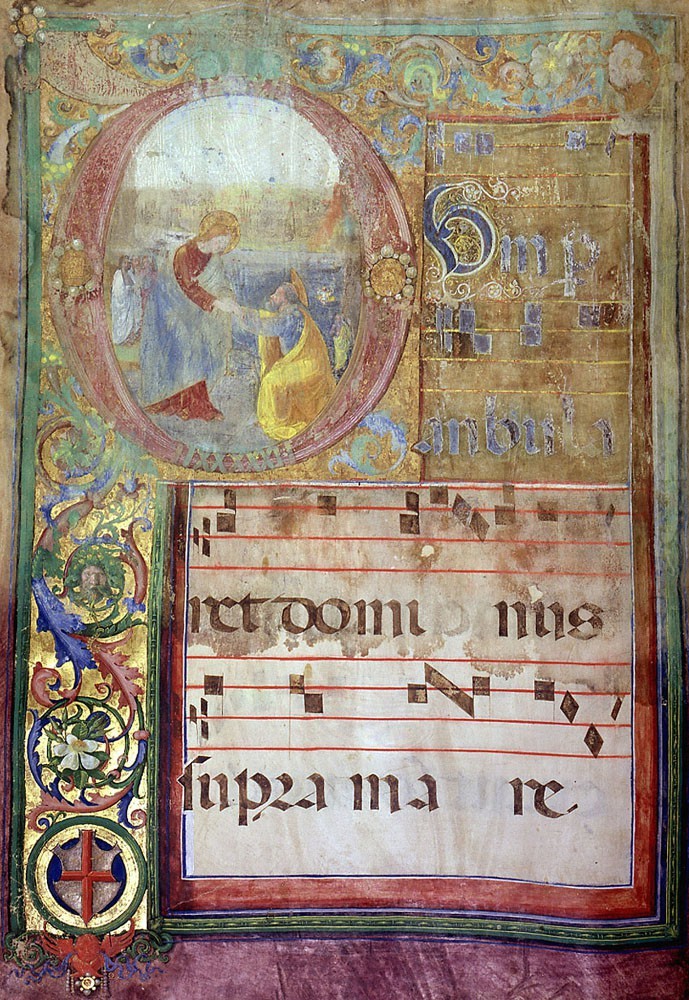 DUm p
ambula
ret domi nus
supra ma re